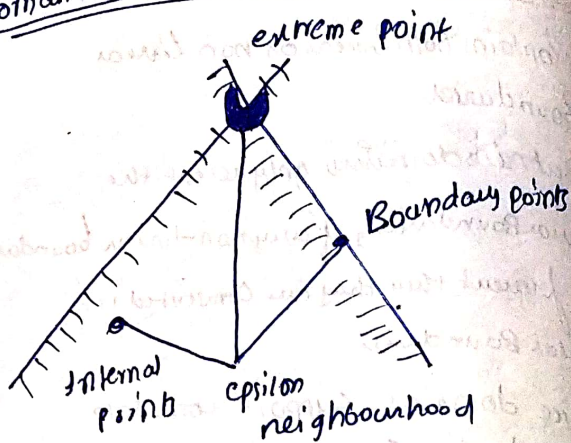 extreme point
Boundary points
Internal
points
epsilon
neighbourhood